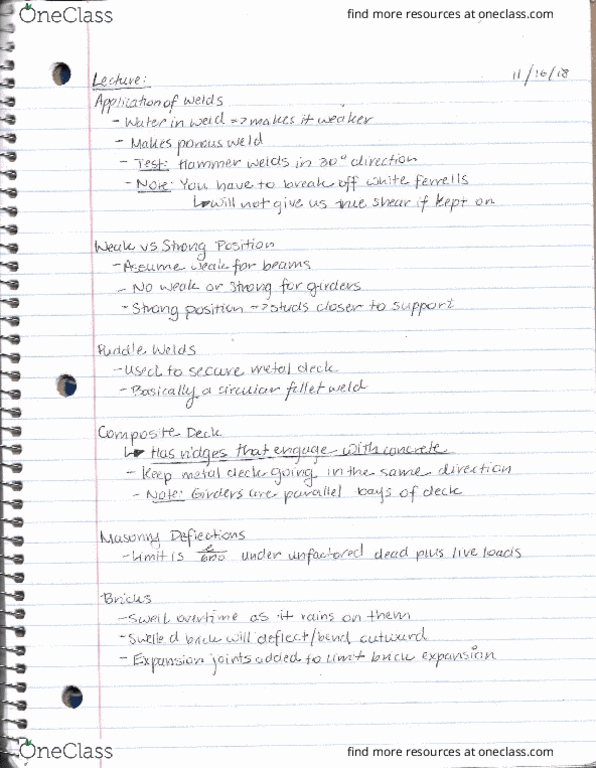 OneClass
find more resources at oneclass.com
11/16/18
Lecture:
Application of Welds
- Water in weld => makes it weaker
- Makes porous weld
- Test: Hammer welds in 30° direction
- Note: You have to break off white ferrells
↳ will not give us true shear if kept on
Weak vs Strong Position
- Assume weak for beams
- No weak or strong for girders
- Strong position -> studs closer to support
Puddle Welds
- Used to secure metal deck
- Basically a circular fillet weld
Composite Deck
↳ Has ridges that engage with concrete
- Keep metal deck going in the same direction
- Note: Girders are parallel bays of deck
Masonry Deflections
- Limit is ℓ/600 under unfactored dead plus live loads
Bricks
- Swell overtime as it rains on them
- Swelled brick will deflect/bend outward
- Expansion joints added to limit brick expansion
OneClass
find more resources at oneclass.com